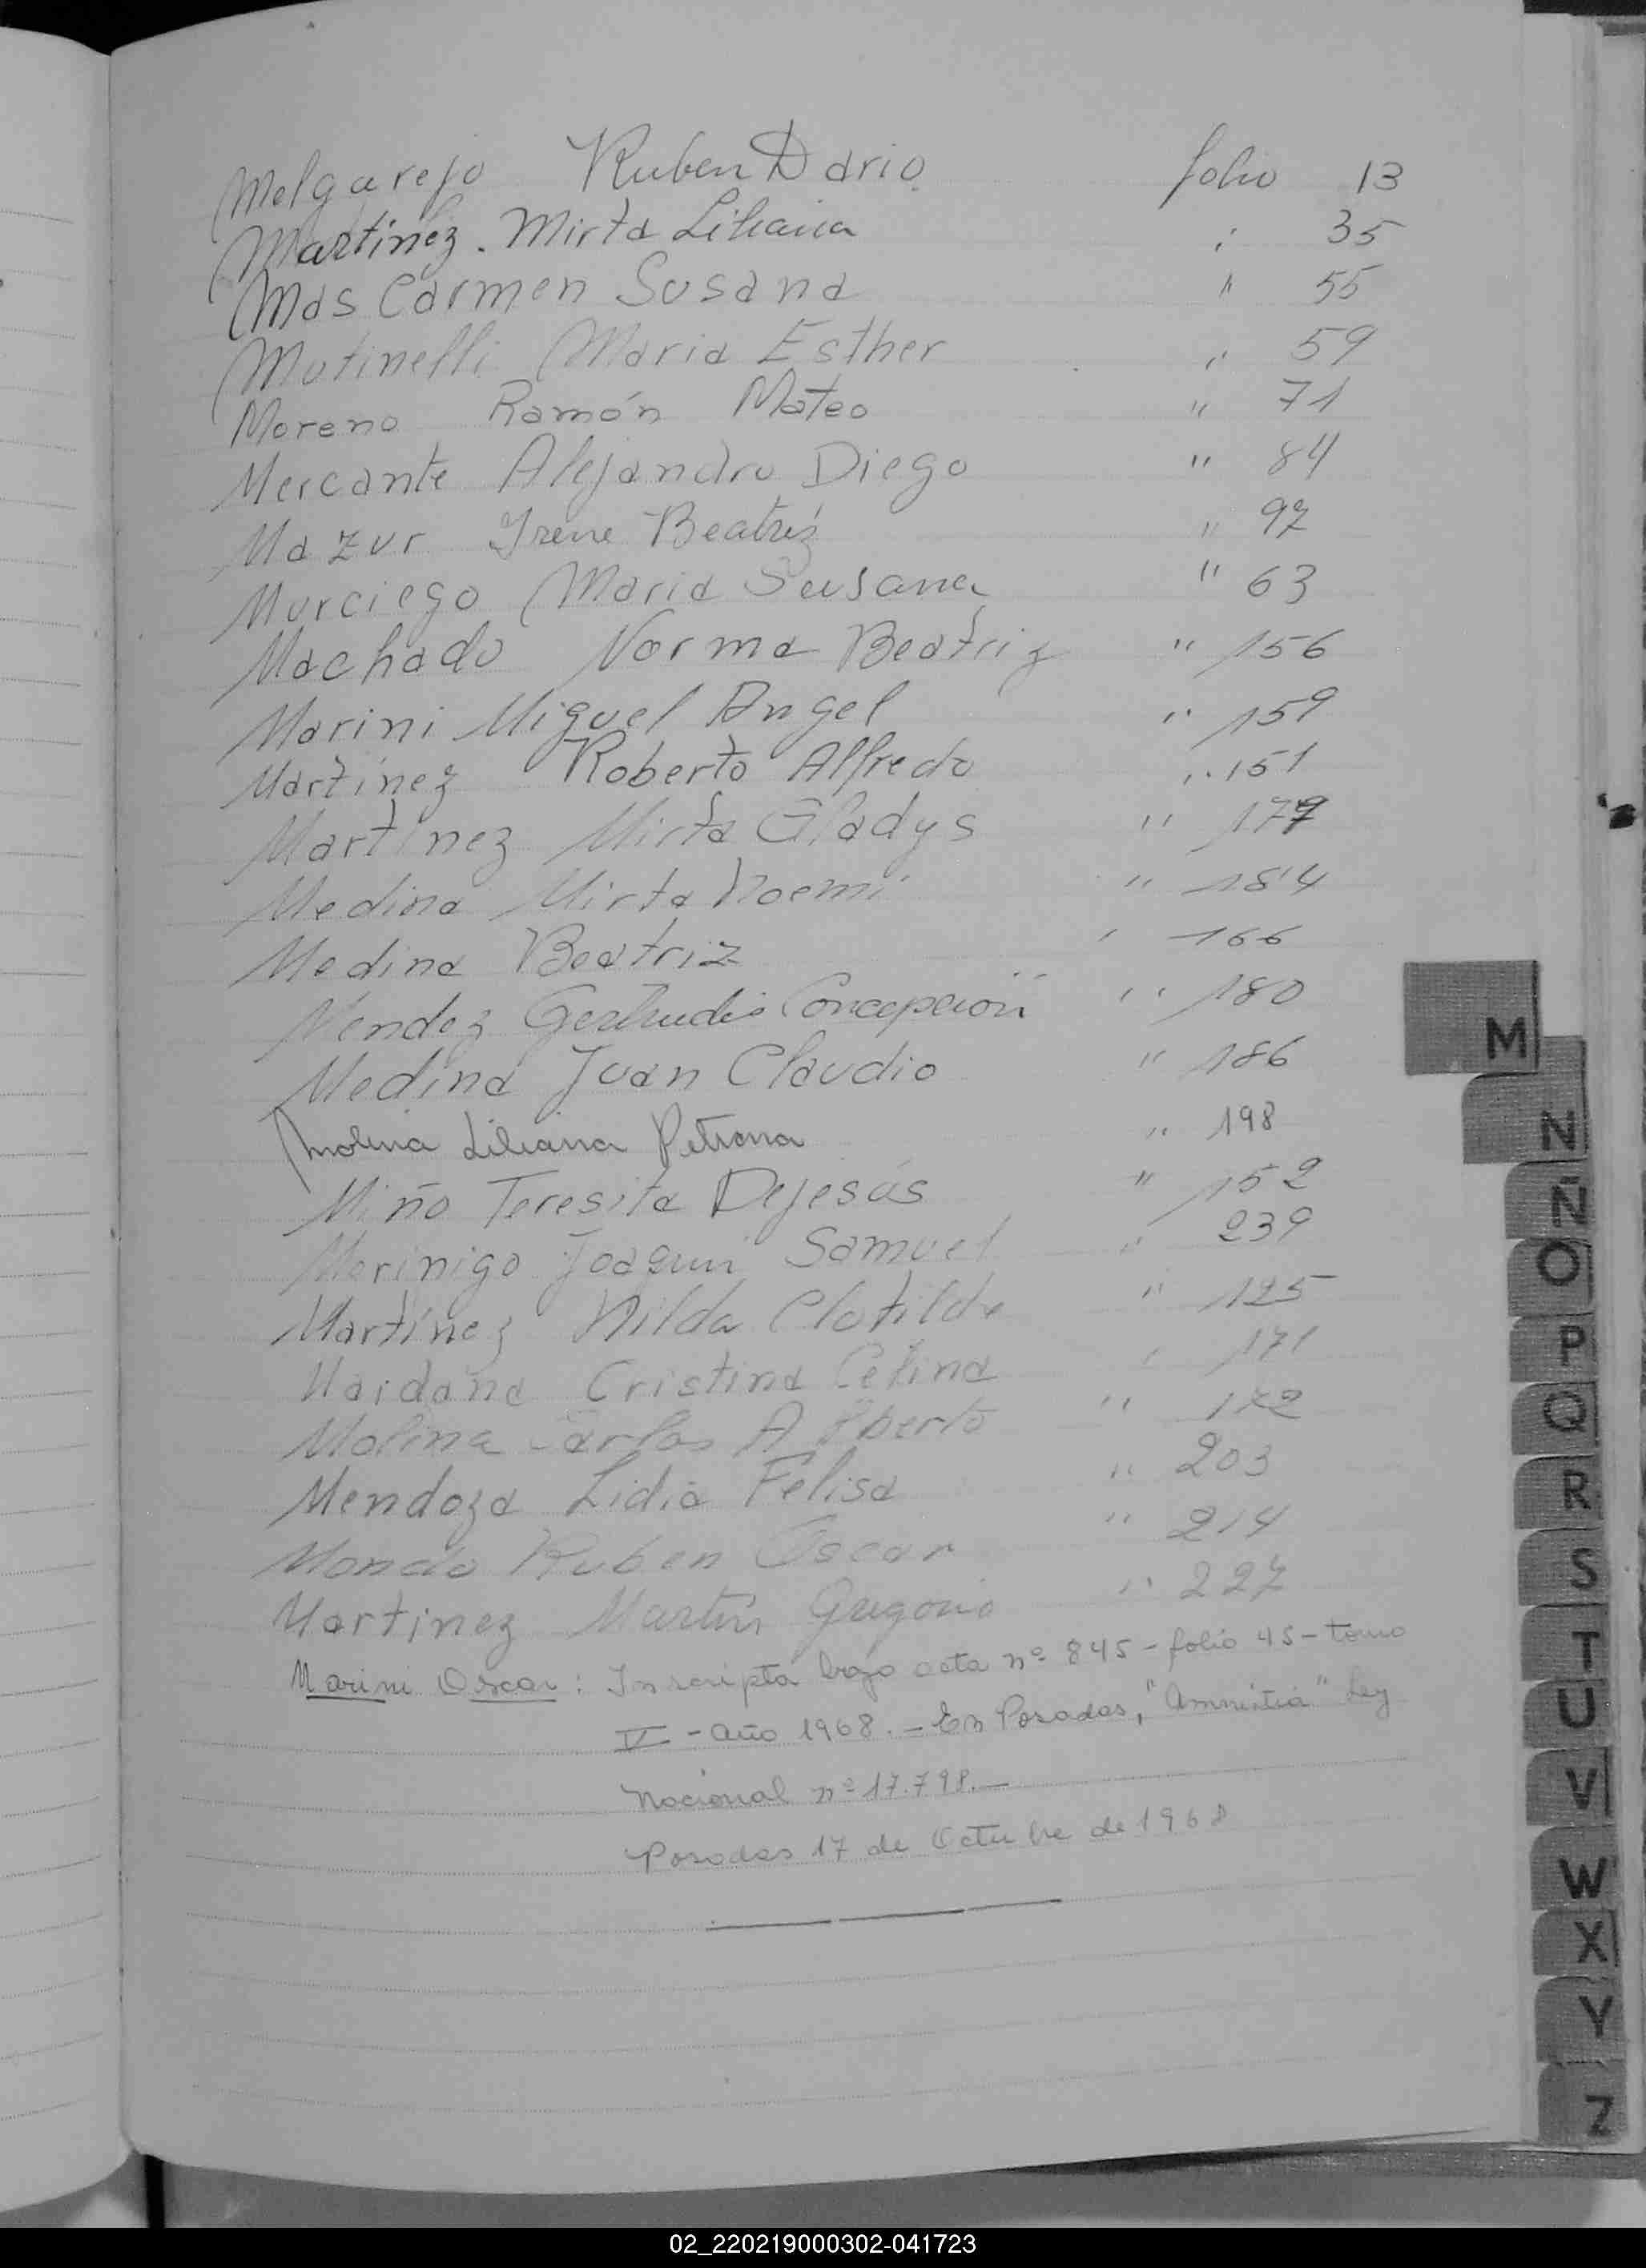 Melgarejo Ruben Dario folio 13
Martínez. Mirta Liliana " 35
Mas Carmen Susana " 55
Mutinelli Maria Esther " 59
Moreno Ramón Mateo " 71
Mercante Alejandro Diego " 84
Mazur Irene Beatriz " 97
Murciego Maria Susana " 63
Machado Norma Beatriz " 156
Marini Miguel Angel " 159
Martínez Roberto Alfredo " 151
Martínez Mirta Gladys " 177
Medina Mirta Noemi " 184
Medina Beatriz " 166
Méndez Gertrudis Concepción " 180
Medina Juan Claudio " 186
Molina Liliana Petrona " 198
Miño Teresita Dejesús " 152
Merinigo Joaquin Samuel " 239
Martínez Nilda Clotilde " 125
Maidana Cristina Celina " 171
Molina Carlos Alberto " 172
Mendoza Lidia Felisa " 203
Mondo Ruben Oscar " 214
Martinez Martín Gregorio " 227
Marini Oscar: Inscripta bajo acta nº 845 - folio 45 - tomo
II - año 1968. - En Posadas, "Amnistia" Ley
Nacional nº 17.798.—
Posadas 17 de Octubre de 1968
M
N
Ñ
O
P
Q
R
S
T
U
V
W
X
Y
Z
02_220219000302-041723